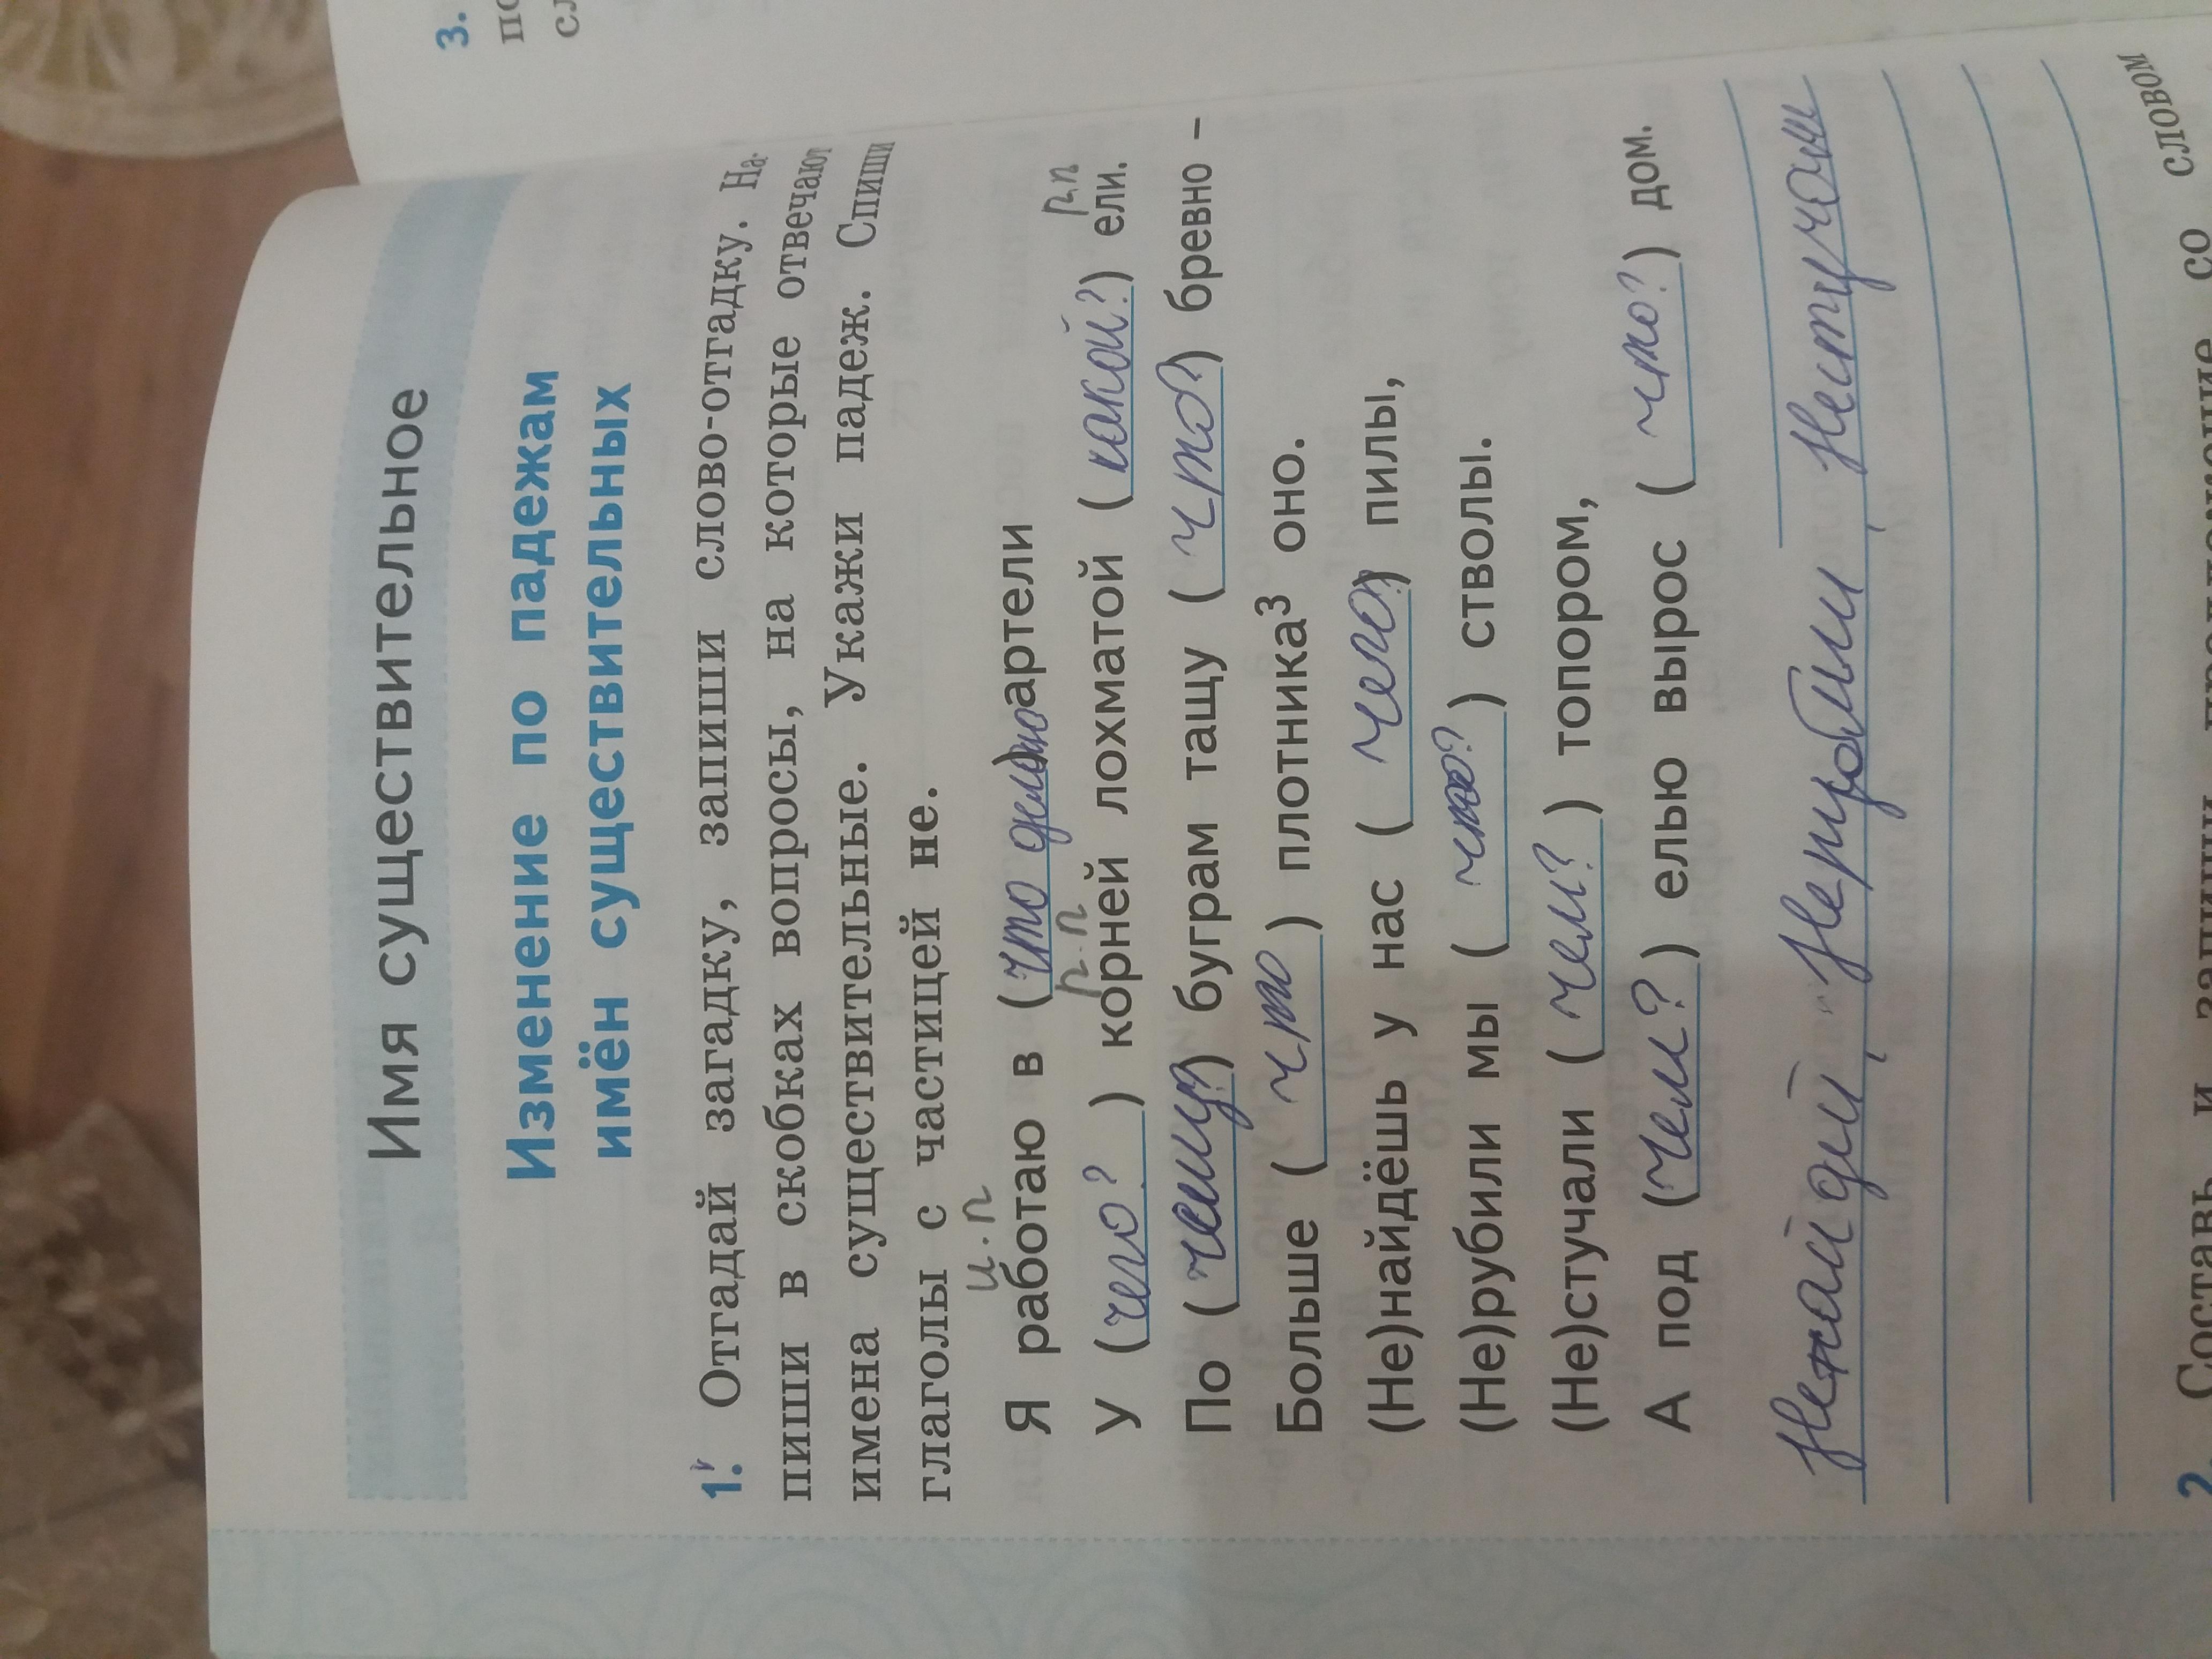 3.
Имя существительное
Изменение по падежам
имён существительных
1. Отгадай загадку, запиши слово-отгадку. На-
пиши в скобках вопросы, на которые отвечают
имена существительные. Укажи падеж. Спиши
глаголы с частицей не.
и.п р.п
Я работаю в (что артели
р.п
У (чего?) корней лохматой (какой?) ели.
По (чему?) буграм тащу (что?) бревно –
Больше (что) плотника³ оно.
(Не)найдёшь у нас (чего?) пилы,
(Не)рубили мы (что?) стволы.
(Не)стучали (чем?) топором,
А под (чем?) елью вырос (что?) дом.
Нерубили, Нестучали
2. Составь и запиши предложение со словом